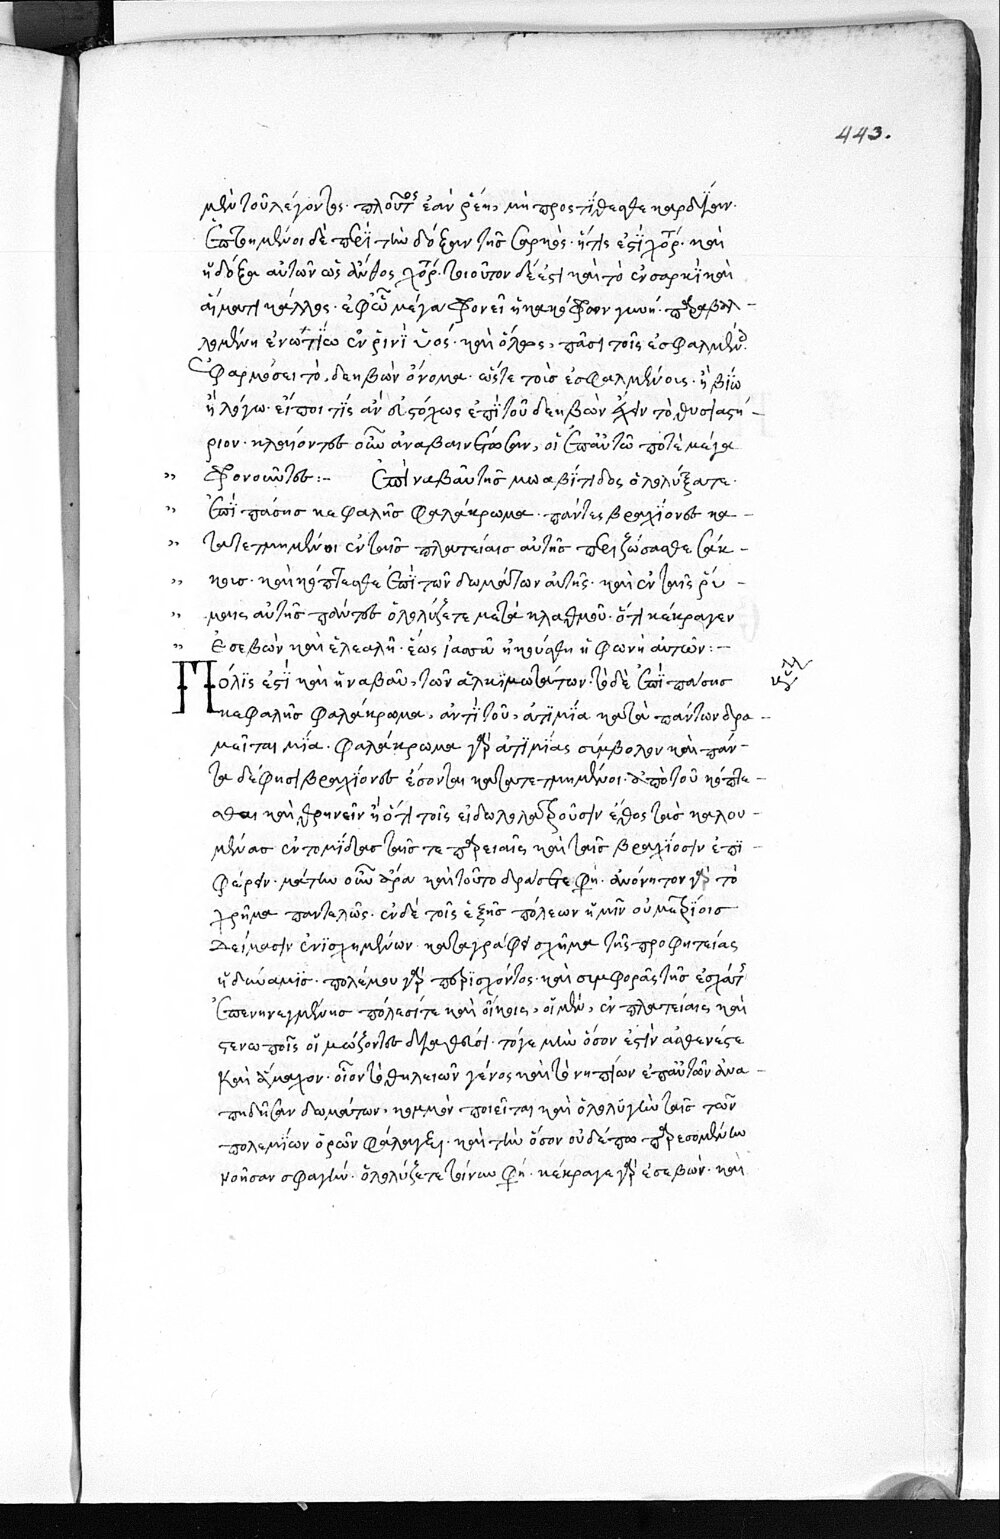 443.
μὲν τοῦ λέγοντος· πλοῦτος ἐὰν ῥέῃ, μὴ προςτίθεσθε καρδίαν·
ἐπτημένοι δὲ περὶ τὴν δόξαν τῆς σαρκός· ἥτις ἐςὶ χόρτος· καὶ
ἡ δόξα αὐτῶν ὡς ἄνθος χόρτου· τοιοῦτον δέ ἐςι καὶ τὸ ἐν σαρκὶ καὶ
αἵματι κάλλος· ἐφ' ᾧ μέγα φρονεῖ ἡ κακόφρων γυνή· παραβαλ-
λομένη ἐνωτίῳ ἐν ῥινὶ ὑός· καὶ ὅλως, πᾶσι τοῖς ἐσφαλμένοις
ἐφαρμόσει τὸ, δεηβὼν ὄνομα· ὥςτε τοῖς ἐσφαλμένοις· ἢ βίῳ
ἢ λόγῳ· εἴποι τὶς ἂν εὐςόχως ἐπὶ τοῦ δεηβὼν ἔχειν τὸ θυσιαςή-
ριον· κλαίοντες οὖν ἀναβαινέτωσαν, οἱ ἐπ' αὐτῷ ποτὲ μέγα
" φρονοῦντες:- Ἐπὶ ναβαῦ τῆς μωαβίτιδος ὀλολύξατε·
" ἐπὶ πάσης κεφαλῆς φαλάκρωμα· πάντες βραχίονες κα-
" τατετμημένοι ἐν ταῖς πλατείαις αὐτῆς περιζώσασθε σάκ-
" κους· καὶ κόπτεσθε ἐπὶ τῶν δωμάτων αὐτῆς· καὶ ἐν ταῖς ῥύ-
" μαις αὐτῆς πάντες ὀλολύζετε μετὰ κλαθμοῦ· ὅτι κέκραγεν
" ἐσεβὼν καὶ ἐλεαλή· ἕως ἰασσὰ ἠκούσθη ἡ φωνὴ αὐτῶν:-
Πόλις ἐςὶ καὶ ἡ ναβαῦ, τῶν ἀλκιμωτάτων· τὸ δὲ ἐπὶ πάσης
κεφαλῆς φαλάκρωμα, ἀντὶ τοῦ, ἀτιμία κατὰ πάντων δρα-
μεῖται μία· φαλάκρωμα γὰρ ἀτιμίας σύμβολον καὶ πάν-
τα δέ φησι βραχίονες ἔσονται κατατετμημένοι· ἀπὸ τοῦ κόπτε-
σθαι καὶ θρηνεῖν ἢ ὅτι τοῖς εἰδωλολατροῦσιν ἔθος τὰς καλου-
μένας ἐντομίδας ταῖς τε παρειαῖς καὶ ταῖς βραχίοσιν ἐπι-
φέρειν· μάτην οὖν ἄρα καὶ τοῦτο δράσετε φησί· ἀνόνητον γὰρ τὸ
χρῆμα παντελῶς· ἐν δέ τοῖς ἑξῆς πόλεων ἡμῖν οὐ μετρίοις
δείμασιν ἐνισχημένων· καταγράφει σχῆμα τῆς προφητείας
ἡ δύναμις· πολέμου γὰρ περισχόντος· καὶ συμφορᾶς τῆς ἐσχάτης
ἐπενηνεγμένης πόλεσί τε καὶ οἴκοις, οἱ μὲν, ἐν πλατείαις καὶ
ςενωποῖς οἰμώζοντες διαθέοι· τό γε μὴν ὅσον ἐςὶν ἀσθενές τε
καὶ ἄμαχον· οἷον τὸ θηλειῶν γένος καὶ τὸ νηπίων ἐπ' αὐτῶν ἀνα-
πηδῆσαν δωμάτων, κομμὸν ποιεῖται καὶ ὀλολυγὴν ταῖς τῶν
πολεμίων ὁρῶν φάλαγξι· καὶ τὴν ὅσον οὐδέπω παρεσομένην
νοῆσαν σφαγήν· ὀλολύζετε τοίνυν φησί· κέκραγε γὰρ ἐσεβών· καὶ